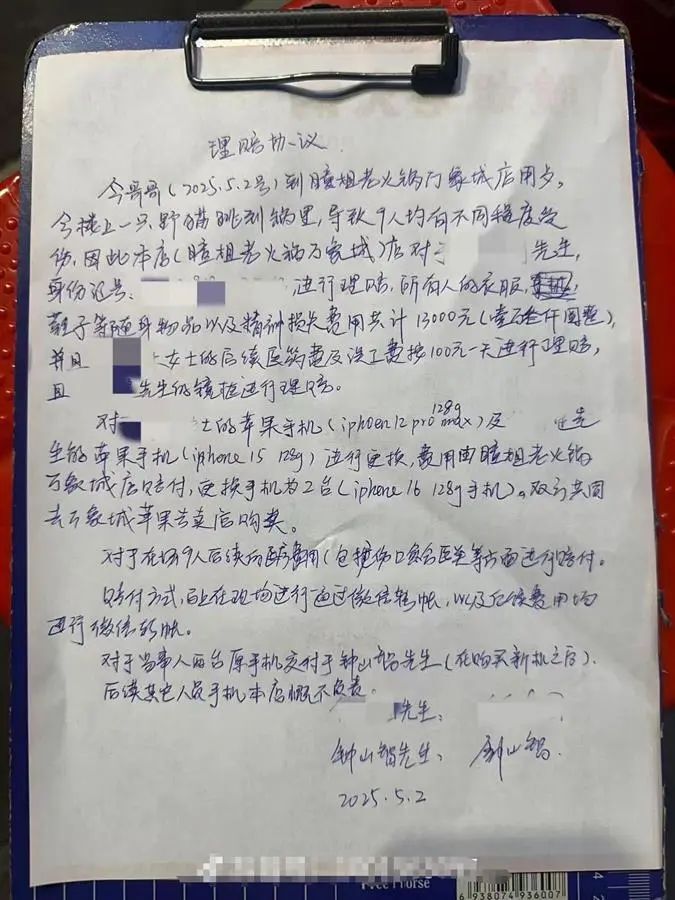 理赔协议
今哥哥(2025.5.2号)到瞳姐老火锅万象城店用歺,
今楼上一只野猫跳到锅里,导致9人均有不同程度受
伤,因此本店(瞳姐老火锅万象城)店对于 先生,
身份证号: 进行理赔,所有人的衣服,
鞋子等随身物品以及精神损失费用共计13000元(壹万叁仟圆整),
并且 女士的后续医药费及误工费按100元一天进行理赔,
且 先生的镜框进行理赔。
对 士的苹果手机(iphoen 12 pro max 128g)及 先
生的苹果手机(iphone 15 128g)进行更换,费用由瞳姐老火锅
万象城店赔付,更换手机为2台(iphone 16 128g手机)。双方共同
去万象城苹果专卖店购买。
对于在场9人后续后 费用(包括伤口愈合医美等方面进行赔付。
赔付方式,当在现场进行通过微信转帐,以及后续费用均
进行微信转帐。
对于当事人两台原手机交付于钟山智先生(在购买新机之后).
后续其它人员手机本店概不负责。
先生:
钟山智先生: 钟山智.
2025.5.2
Free Horse
6 938074 936007